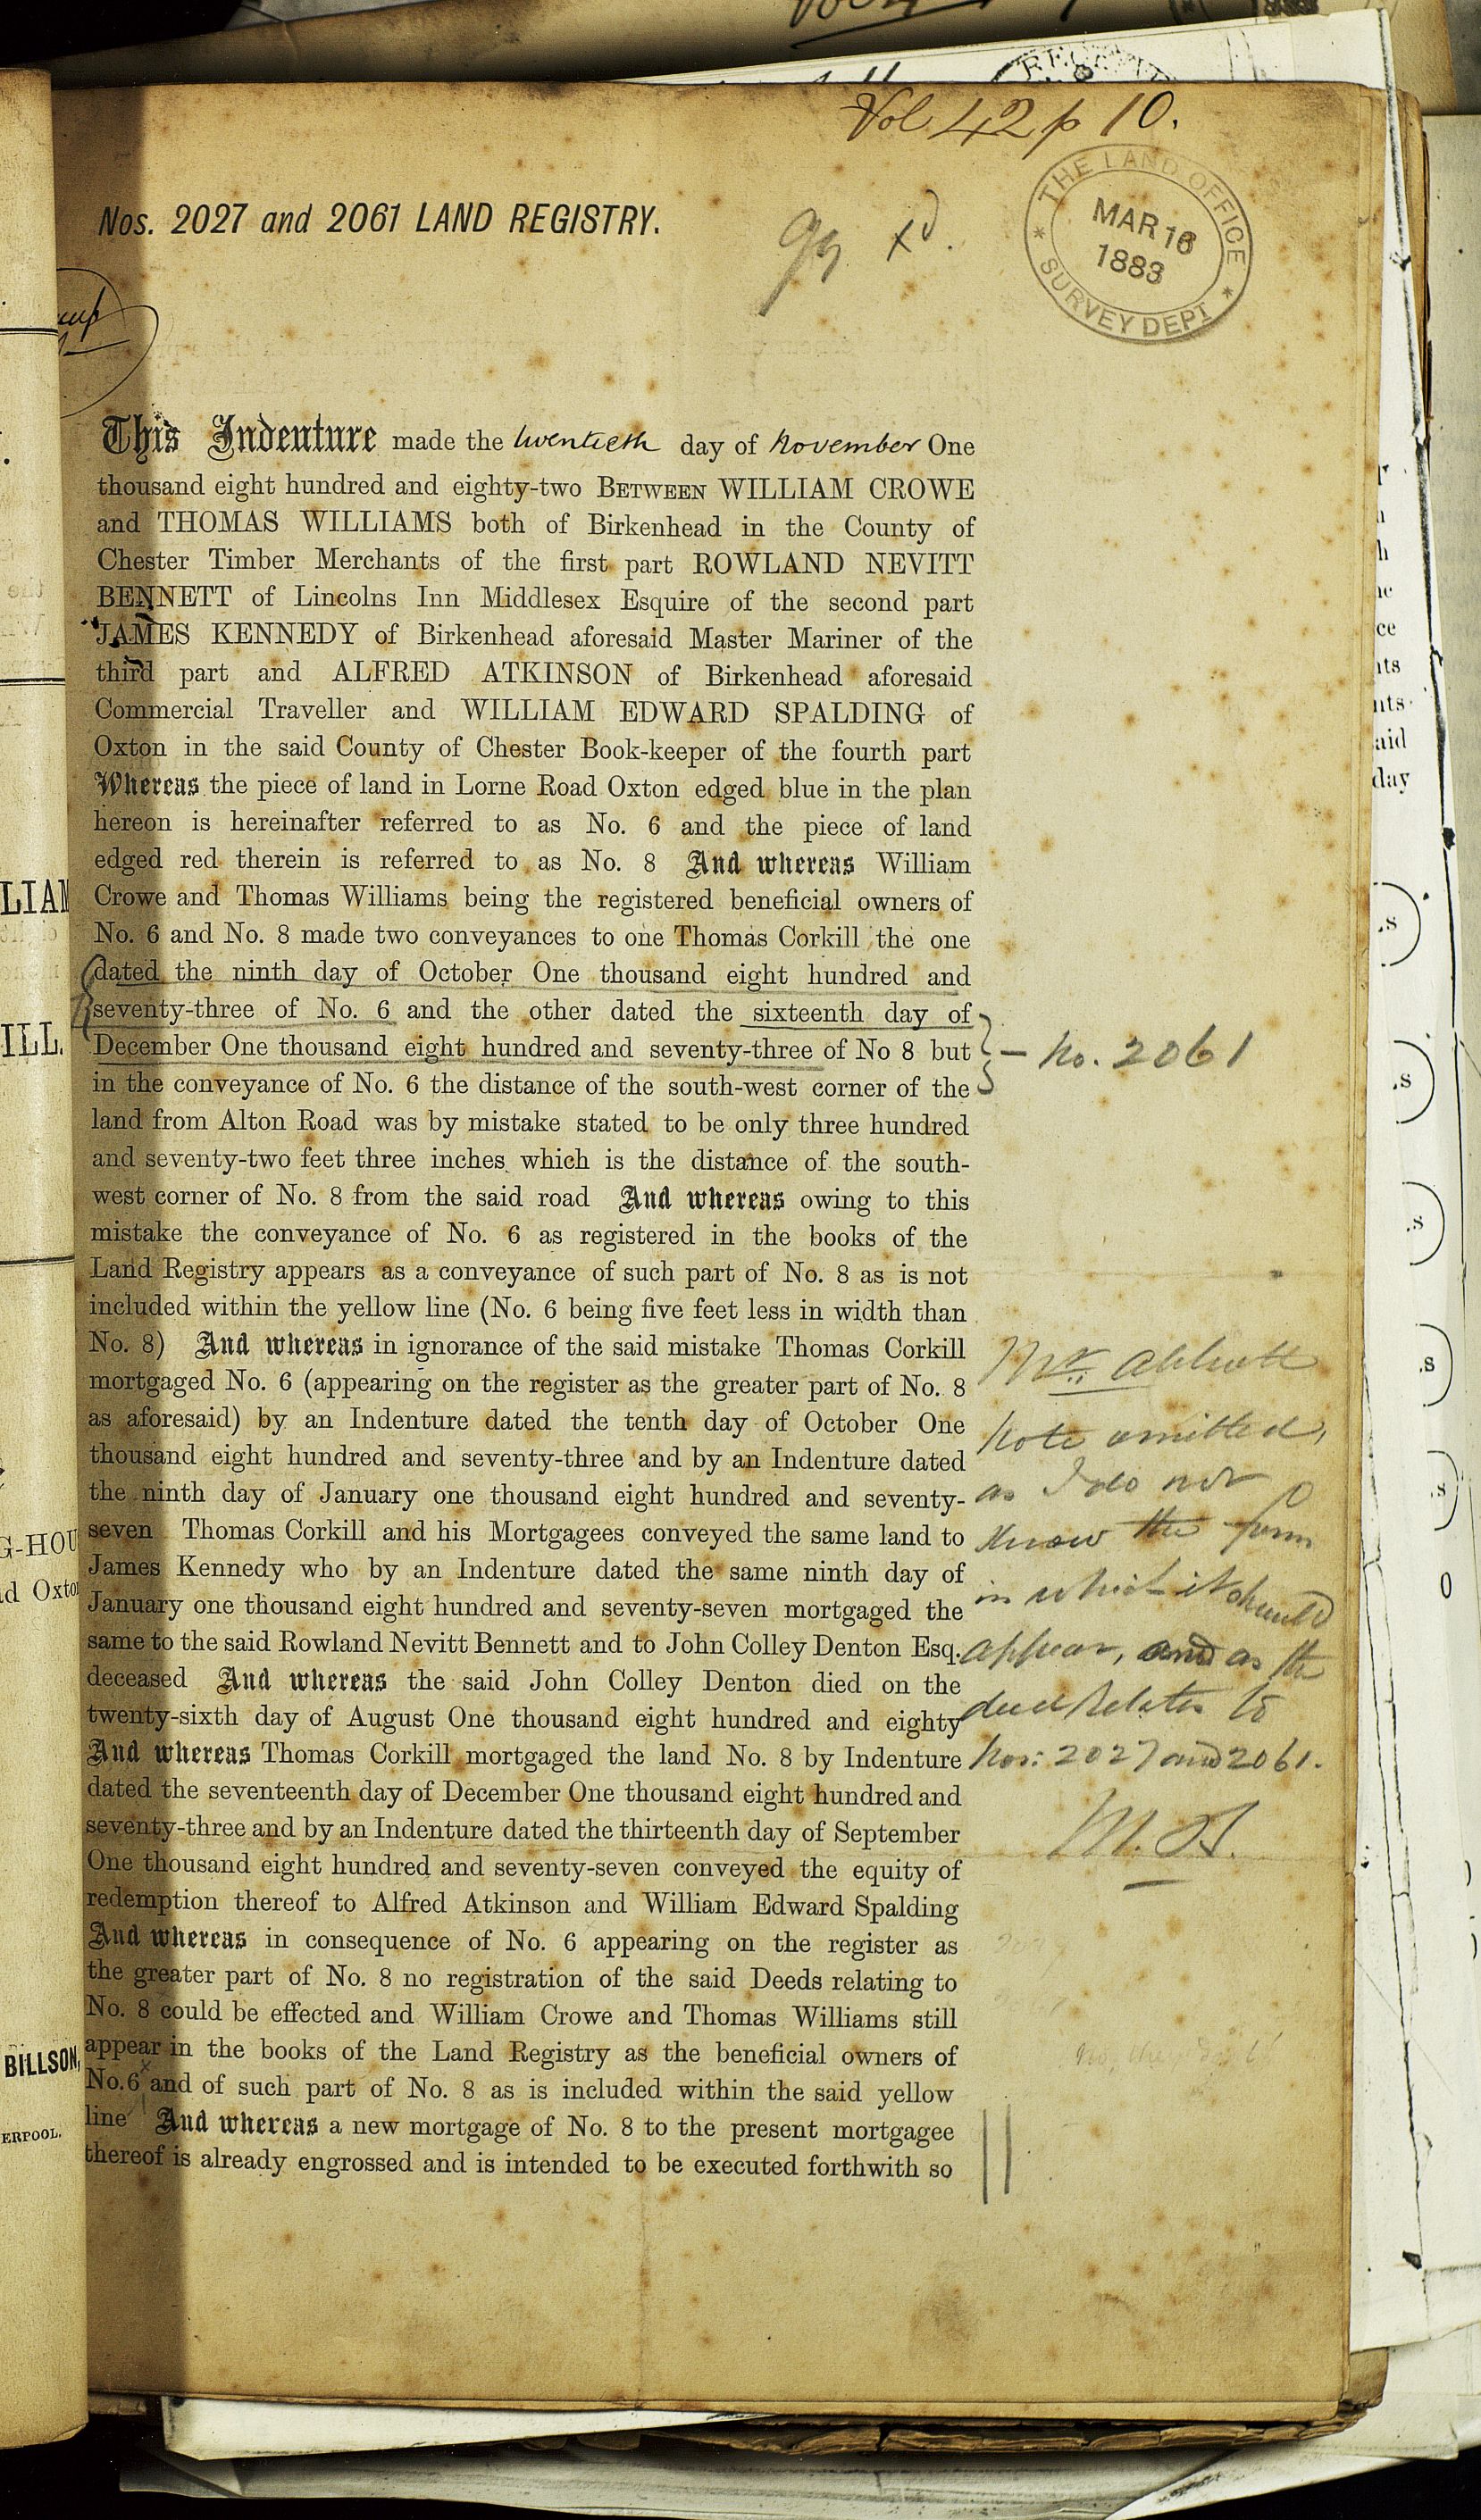 Vol 42 p 10.
THE LAND OFFICE
MAR 16
1883
SURVEY DEPT
Nos. 2027 and 2061 LAND REGISTRY.
This Indenture made the twentieth day of November One
thousand eight hundred and eighty-two BETWEEN WILLIAM CROWE
and THOMAS WILLIAMS both of Birkenhead in the County of
Chester Timber Merchants of the first part ROWLAND NEVITT
BENNETT of Lincolns Inn Middlesex Esquire of the second part
JAMES KENNEDY of Birkenhead aforesaid Master Mariner of the
third part and ALFRED ATKINSON of Birkenhead aforesaid
Commercial Traveller and WILLIAM EDWARD SPALDING of
Oxton in the said County of Chester Book-keeper of the fourth part
Whereas the piece of land in Lorne Road Oxton edged blue in the plan
hereon is hereinafter referred to as No. 6 and the piece of land
edged red therein is referred to as No. 8 And whereas William
Crowe and Thomas Williams being the registered beneficial owners of
No. 6 and No. 8 made two conveyances to one Thomas Corkill the one
dated the ninth day of October One thousand eight hundred and
seventy-three of No. 6 and the other dated the sixteenth day of
December One thousand eight hundred and seventy-three of No 8 but
in the conveyance of No. 6 the distance of the south-west corner of the
land from Alton Road was by mistake stated to be only three hundred
and seventy-two feet three inches which is the distance of the south-
west corner of No. 8 from the said road And whereas owing to this
mistake the conveyance of No. 6 as registered in the books of the
Land Registry appears as a conveyance of such part of No. 8 as is not
included within the yellow line (No. 6 being five feet less in width than
No. 8) And whereas in ignorance of the said mistake Thomas Corkill
mortgaged No. 6 (appearing on the register as the greater part of No. 8
as aforesaid) by an Indenture dated the tenth day of October One
thousand eight hundred and seventy-three and by an Indenture dated
the ninth day of January one thousand eight hundred and seventy-
seven Thomas Corkill and his Mortgagees conveyed the same land to
James Kennedy who by an Indenture dated the same ninth day of
January one thousand eight hundred and seventy-seven mortgaged the
same to the said Rowland Nevitt Bennett and to John Colley Denton Esq.
deceased And whereas the said John Colley Denton died on the
twenty-sixth day of August One thousand eight hundred and eighty
And whereas Thomas Corkill mortgaged the land No. 8 by Indenture
dated the seventeenth day of December One thousand eight hundred and
seventy-three and by an Indenture dated the thirteenth day of September
One thousand eight hundred and seventy-seven conveyed the equity of
redemption thereof to Alfred Atkinson and William Edward Spalding
And whereas in consequence of No. 6 appearing on the register as
the greater part of No. 8 no registration of the said Deeds relating to
No. 8 could be effected and William Crowe and Thomas Williams still
appear in the books of the Land Registry as the beneficial owners of
No. 6 and of such part of No. 8 as is included within the said yellow
line And whereas a new mortgage of No. 8 to the present mortgagee
thereof is already engrossed and is intended to be executed forthwith so
No. 2061
Mr. Abbott
Note omitted,
as I do not
know the form
in which it should
appear, and as the
deed relates to
Nos: 2027 and 2061.
LIAM
ILL.
G-HOU
d Oxton
BILLSON,
ERPOOL.